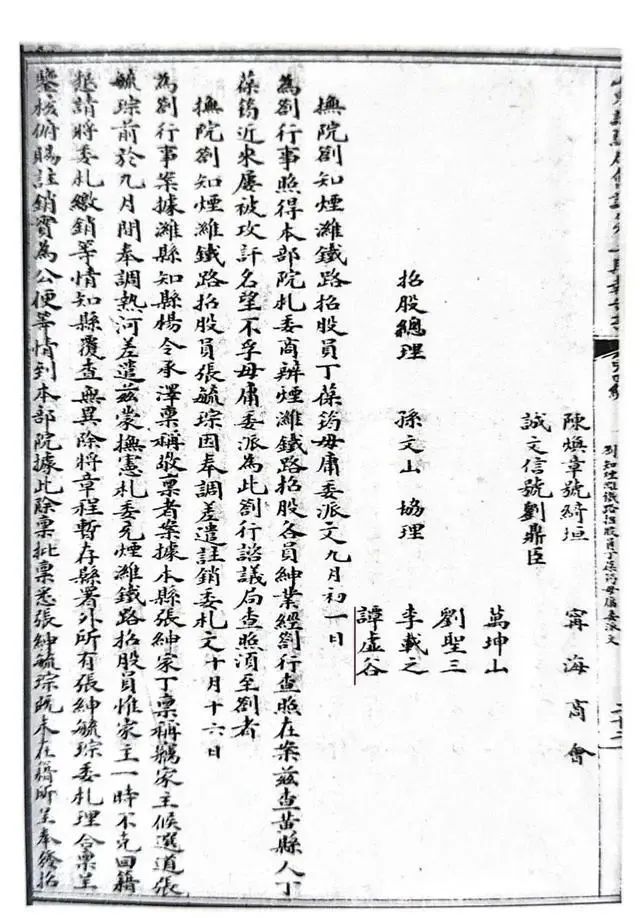 陳煥章號綺垣　甯海商會
誠文信號劉鼎臣
萬坤山
劉聖三
招股總理　孫文山　協理　李載之
譚虛谷
撫院劄知煙濰鐵路招股員丁葆筠毋庸委派文九月初一日
為劄行事照得本部院札委商辨煙濰鐵路招股各員紳業經劄行查照在案茲查黃縣人丁
葆筠近來屢被攻訐名望不孚毋庸委派為此劄行諮議局查照須至劄者
撫院劄知煙濰鐵路招股員張毓琮因奉調差遣註銷委札文十月十六日
為劄行事案據濰縣知縣楊令承澤稟稱敬稟者案據本縣張紳家丁稟稱竊家主候選道張
毓琮前於九月間奉調熱河差遣茲蒙撫憲札委充煙濰鐵路招股員惟家主一時不克回籍
懇請將委札繳銷等情知縣覆查無異除將章程暫存縣署外所有張紳毓琮委札理合稟呈
鑒核俯賜註銷實為公便等情到本部院據此除稟批稟悉張紳毓琮既未在籍所呈奉發招
劄知煙濰鐵路招股員丁葆筠毋庸委派文